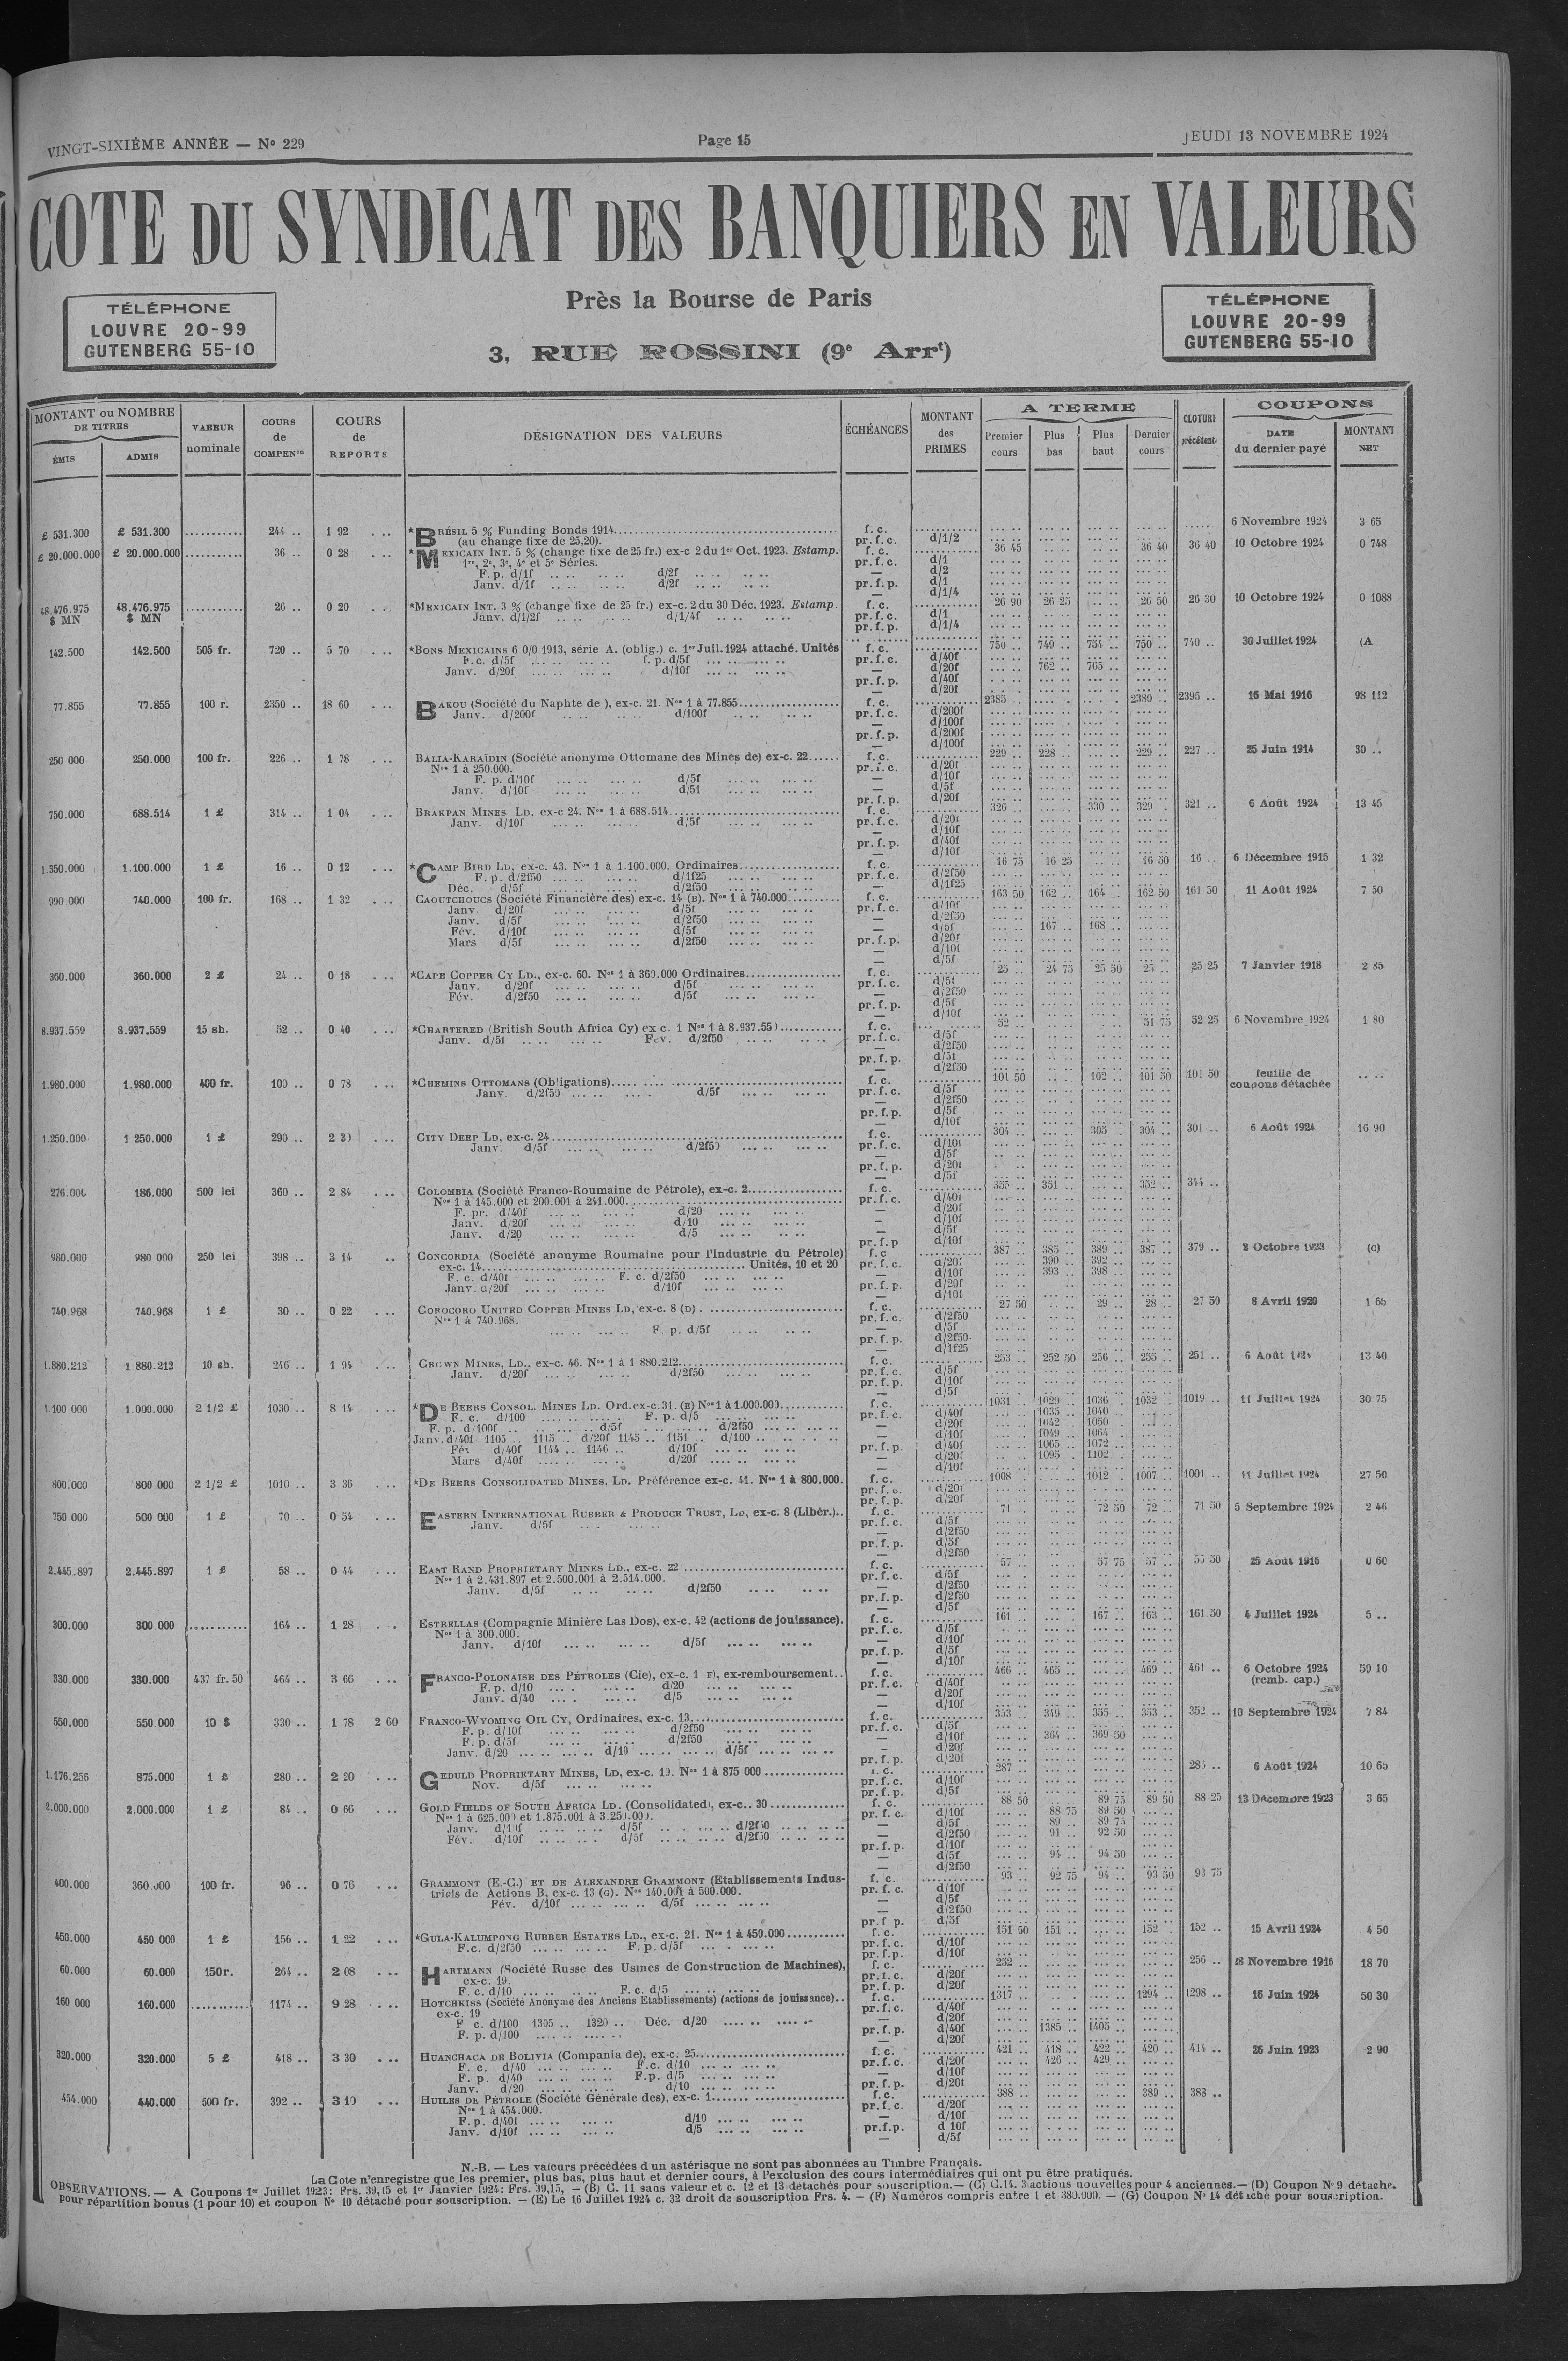 VINGT-SIXIÈME ANNÉE — No 229
Page 15
JEUDI 13 NOVEMBRE 1924
COTE DU SYNDICAT DES BANQUIERS EN VALEURS
Près la Bourse de Paris
3, RUE ROSSINI (9e Arrt)
TÉLÉPHONE
LOUVRE 20-99
GUTENBERG 55-10
TÉLÉPHONE
LOUVRE 20-99
GUTENBERG 55-10
MONTANT ou NOMBRE DE TITRES
ÉMIS ADMIS
VALEUR nominale
COURS de COMPENon
COURS de REPORTS
DÉSIGNATION DES VALEURS
ÉCHÉANCES
MONTANT des PRIMES
A TERME
Premier cours Plus bas Plus haut Dernier cours
CLOTURE précédente
COUPONS
DATE du dernier payé
MONTANT NET
£ 531.300 £ 531.300 ........... 244 .. 1 92 . .. *BRÉSIL 5 % Funding Bonds 1914 f. c. 6 Novembre 1924 3 65
(au change fixe de 25,20). pr. f. c. d/1/2
£ 20.000.000 £ 20.000.000 ........... 36 .. 0 28 . .. *MEXICAIN INT. 5 % (change fixe de 25 fr.) ex-c 2 du 1er Oct. 1923. Estamp. f. c. 36 45 36 40 36 40 10 Octobre 1924 0 748
1re, 2e, 3e, 4e et 5e Séries. pr. f. c. d/1
F. p. d/1f d/2f — d/2
Janv. d/1f d/2f pr. f. p. d/1
— d/1/4
48.476.975 $ MN 48.476.975 $ MN ........... 26 .. 0 20 . .. *MEXICAIN INT. 3 % (change fixe de 25 fr.) ex-c. 2 du 30 Déc. 1923. Estamp. f. c. 26 90 26 25 26 50 26 30 10 Octobre 1924 0 1088
Janv. d/1/2f d/1/4f pr. f. c. d/1
pr. f. p. d/1/4
142.500 142.500 505 fr. 720 .. 5 70 . .. *BONS MEXICAINS 6 0/0 1913, série A, (oblig.) c. 1er Juil. 1924 attaché. Unités f. c. 750 .. 749 .. 754 .. 750 .. 740 .. 30 Juillet 1924 (A
F. c. d/5f f. p. d/5f pr. f. c. d/40f
Janv. d/20f d/10f — d/20f 762 .. 765 ..
pr. f. p. d/40f
— d/20f
77.855 77.855 100 r. 2350 .. 18 60 . .. BAKOU (Société du Naphte de ), ex-c. 21. Nos 1 à 77.855 f. c. 2385 2380 .. 2395 .. 16 Mai 1916 98 112
Janv. d/200f d/100f pr. f. c. d/200f
— d/100f
pr. f. p. d/200f
— d/100f
250 000 250.000 100 fr. 226 .. 1 78 . .. BALIA-KARAÏDIN (Société anonyme Ottomane des Mines de) ex-c. 22 f. c. 229 .. 228 .. 229 .. 227 .. 25 Juin 1914 30 ..
Nos 1 à 250.000. pr. f. c. d/20f
F. p. d/10f d/5f — d/10f
Janv. d/10f d/5f — d/5f
pr. f. p. d/20f
750.000 688.514 1 £ 314 .. 1 04 . .. BRAKPAN MINES LD, ex-c 24. Nos 1 à 688.514 f. c. 326 .. 330 .. 329 .. 321 .. 6 Août 1924 13 45
Janv. d/10f d/5f pr. f. c. d/20f
— d/10f
pr. f. p. d/40f
— d/10f
1.350.000 1.100.000 1 £ 16 .. 0 12 . .. *CAMP BIRD LD, ex-c. 43. Nos 1 à 1.100.000. Ordinaires f. c. 16 75 16 25 16 50 16 .. 6 Décembre 1915 1 32
F. p. d/2f50 d/1f25 pr. f. c. d/2f50
Déc. d/5f d/2f50 — d/1f25
990 000 740.000 100 fr. 168 .. 1 32 . .. CAOUTCHOUCS (Société Financière des) ex-c. 14 (B). Nos 1 à 740.000 f. c. 163 50 162 .. 164 .. 162 50 161 50 11 Août 1924 7 50
Janv. d/20f d/5f pr. f. c. d/10f
Janv. d/5f d/2f50 — d/2f50
Fév. d/10f d/5f — d/5f 167 .. 168 ..
Mars d/5f d/2f50 pr. f. p. d/20f
— d/10f
— d/5f
360.000 360.000 2 £ 24 .. 0 18 . .. *CAPE COPPER CY LD., ex-c. 60. Nos 1 à 360.000 Ordinaires f. c. 25 .. 24 75 25 50 25 .. 25 25 7 Janvier 1918 2 85
Janv. d/20f d/5f pr. f. c. d/5f
Fév. d/2f50 d/5f — d/2f50
pr. f. p. d/5f
— d/10f
8.937.559 8.937.559 15 sh. 52 .. 0 40 . .. *CHARTERED (British South Africa Cy) ex c. 1 Nos 1 à 8.937.559 f. c. 52 .. 51 75 52 25 6 Novembre 1924 1 80
Janv. d/5f Fév. d/2f50 pr. f. c. d/5f
— d/2f50
pr. f. p. d/5f
— d/2f50
1.980.000 1.980.000 400 fr. 100 .. 0 78 . .. *CHEMINS OTTOMANS (Obligations) f. c. 101 50 102 .. 101 50 101 50 feuille de coupons détachée
Janv. d/2f50 d/5f pr. f. c. d/5f
— d/2f50
pr. f. p. d/5f
— d/10f
1.250.000 1 250.000 1 £ 290 .. 2 30 . .. CITY DEEP LD, ex-c. 24 f. c. 304 .. 305 304 .. 301 .. 6 Août 1924 16 90
Janv. d/5f d/2f50 pr. f. c. d/10f
— d/5f
pr. f. p. d/20f
— d/5f
276.000 186.000 500 lei 360 .. 2 84 . .. COLOMBIA (Société Franco-Roumaine de Pétrole), ex-c. 2 f. c. 355 .. 351 .. 352 .. 344 ..
Nos 1 à 145.000 et 200.001 à 241.000 pr. f. c. d/40f
F. pr. d/40f d/20 — d/20f
Janv. d/20f d/10 — d/10f
Janv. d/20 d/5 — d/5f
pr. f. p d/10f
980.000 980 000 250 lei 398 .. 3 14 .. CONCORDIA (Société anonyme Roumaine pour l'Industrie du Pétrole) f. c 387 .. 385 .. 389 .. 387 .. 379 .. 2 Octobre 1923 (c)
ex-c. 14 Unités, 10 et 20 pr. f. c. d/20f 390 .. 392 ..
F. c. d/40f F. c. d/2f50 — d/10f 393 .. 398 ..
Janv. d/20f d/10f pr. f. p. d/20f
— d/10f
740.968 740.968 1 £ 30 .. 0 22 . .. COROCORO UNITED COPPER MINES LD, ex-c. 8 (D) f. c. 27 50 29 .. 28 .. 27 50 8 Avril 1920 1 65
Nos 1 à 740.968. pr. f. c. d/2f50
F. p. d/5f — d/5f
pr. f. p. d/2f50
— d/1f25
1.880.212 1 880.212 10 sh. 246 .. 1 94 . .. CROWN MINES, LD., ex-c. 46. Nos 1 à 1 880.212 f. c. 253 .. 252 50 256 .. 255 .. 251 .. 6 Août 1924 13 40
Janv. d/20f d/2f50 pr. f. c. d/5f
pr. f. p. d/10f
— d/5f
1.100 000 1.000.000 2 1/2 £ 1030 .. 8 14 . .. *DE BEERS CONSOL. MINES LD. Ord. ex-c. 31. (E) Nos 1 à 1.000.000 f. c. 1031 .. 1029 .. 1036 .. 1032 .. 1019 .. 11 Juillet 1924 30 75
F. c. d/100 F. p. d/5 pr. f. c. d/40f 1035 .. 1040 ..
F. p. d/100f d/5f d/2f50 — d/20f 1042 .. 1050 ..
Janv. d/40f 1105 .. 1115 .. d/20f 1145 .. 1151 .. d/100 — d/10f 1049 .. 1064 ..
Fév d/40f 1144 .. 1146 .. d/10f pr. f. p. d/40f 1065 .. 1072 ..
Mars d/40f d/20f — d/20f 1095 .. 1102 ..
— d/10f
800.000 800 000 2 1/2 £ 1010 .. 3 36 . .. *DE BEERS CONSOLIDATED MINES, LD. Préférence ex-c. 41. Nos 1 à 800.000. f. c. 1008 1012 .. 1007 .. 1001 .. 11 Juillet 1924 27 50
pr. f. c. d/20f
pr. f. p. d/20f
750 000 500 000 1 £ 70 .. 0 54 . .. EASTERN INTERNATIONAL RUBBER & PRODUCE TRUST, LD, ex-c. 8 (Libér.) f. c. 71 .. 72 50 72 .. 71 50 5 Septembre 1924 2 46
Janv. d/5f pr. f. c. d/5f
— d/2f50
pr. f. p. d/5f
— d/2f50
2.445.897 2.445.897 1 £ 58 .. 0 44 . .. EAST RAND PROPRIETARY MINES LD., ex-c. 22 f. c. 57 .. 57 75 57 .. 55 50 25 Août 1916 0 60
Nos 1 à 2.431.897 et 2.500.001 à 2.514.000. pr. f. c. d/5f
Janv. d/5f d/2f50 — d/2f50
pr. f. p. d/2f50
— d/5f
300.000 300 000 ........... 164 .. 1 28 . . ESTRELLAS (Compagnie Minière Las Dos), ex-c. 42 (actions de jouissance). f. c. 161 .. 167 .. 163 .. 161 50 4 Juillet 1924 5 ..
Nos 1 à 300.000. pr. f. c. d/5f
Janv. d/10f d/5f — d/10f
pr. f. p. d/5f
— d/10f
330.000 330.000 437 fr. 50 464 .. 3 66 . .. FRANCO-POLONAISE DES PÉTROLES (Cie), ex-c. 1 F), ex-remboursement f. c. 466 .. 465 .. 469 .. 461 .. 6 Octobre 1924 (remb. cap.) 59 10
F. p. d/10 d/20 pr. f. c. d/40f
Janv. d/40 d/5 — d/20f
— d/10f
550.000 550 000 10 $ 330 .. 1 78 2 60 FRANCO-WYOMING OIL CY, Ordinaires, ex-c. 13 f. c. 353 .. 349 .. 355 .. 353 .. 352 .. 10 Septembre 1924 7 84
F. p. d/10f d/2f50 pr. f. c. d/5f
F. p. d/5f d/2f50 — d/10f 364 .. 369 50
Janv. d/20 d/10 d/5f — d/20f
pr. f. p. d/20f
1.176.256 875.000 1 £ 280 .. 2 20 . .. GEDULD PROPRIETARY MINES, LD, ex-c. 19. Nos 1 à 875 000 f. c. 287 .. 285 .. 6 Août 1924 10 65
Nov. d/5f pr. f. c. d/10f
pr. f. p. d/5f
2.000.000 2.000.000 1 £ 84 .. 0 66 . .. GOLD FIELDS OF SOUTH AFRICA LD. (Consolidated), ex-c. 30 f. c. 88 50 89 75 89 50 88 25 13 Décembre 1923 3 65
Nos 1 à 625.000 et 1.875.001 à 3.250.000. pr. f. c. d/10f 88 75 89 50
Janv. d/10f d/5f d/2f50 — d/5f 89 .. 89 75
Fév. d/10f d/5f d/2f50 — d/2f50 91 .. 92 50
pr. f. p. d/10f
— d/5f 94 .. 94 50
— d/2f50
400.000 360.000 100 fr. 96 .. 0 76 . .. GRAMMONT (E.-C.) ET DE ALEXANDRE GRAMMONT (Etablissements Indus- f. c. 93 .. 92 75 94 .. 93 50 93 75
triels de Actions B, ex-c. 13 (G). Nos 140.001 à 500.000. pr. f. c. d/10f
Fév. d/10f d/5f — d/5f
— d/2f50
pr. f p. d/5f
450.000 450 000 1 £ 156 .. 1 22 . .. *GULA-KALUMPONG RUBBER ESTATES LD., ex-c. 21. Nos 1 à 450.000 f. c. 151 50 151 .. 152 152 .. 15 Avril 1924 4 50
F.c. d/2f50 F. p. d/5f pr. f. c. d/10f
pr. f. p. d/10f
60.000 60.000 150 r. 264 .. 2 08 . .. HARTMANN (Société Russe des Usines de Construction de Machines), f. c. 252 .. 256 .. 18 Novembre 1916 18 70
ex-c. 19. pr. f. c. d/20f
F. c. d/10 F. c. d/5 pr. f. p. d/20f
160 000 160.000 ........... 1174 .. 9 28 . .. HOTCHKISS (Société Anonyme des Anciens Etablissements) (actions de jouissance) f. c. 1317 1294 .. 1298 .. 16 Juin 1924 50 30
ex-c. 19 pr. f. c. d/40f
F c. d/100 1305 .. 1320 .. Déc. d/20 — d/20f
F. p. d/100 pr. f. p. d/40f 1385 .. 1405 ..
— d/20f
320.000 320.000 5 £ 418 .. 3 30 . .. HUANCHACA DE BOLIVIA (Compania de), ex-c. 25 f. c. 421 .. 418 .. 422 .. 420 .. 414 .. 26 Juin 1923 2 90
F. c. d/40 F.c. d/10 pr. f. c. d/20f 426 .. 429 ..
F. p. d/40 F.p. d/5 — d/10f
Janv. d/20 d/10 pr. f. p. d/20f
454.000 440.000 500 fr. 392 .. 3 10 . .. HUILES DE PÉTROLE (Société Générale des), ex-c. 1 f. c. 388 .. 389 .. 383 ..
Nos 1 à 454.000. pr. f. c. d/20f
F. p. d/40f d/10 — d/10f
Janv. d/10f d/5 pr.f.p. d 10f
— d/5f
N.-B. — Les valeurs précédées d un astérisque ne sont pas abonnées au Timbre Français.
La Cote n'enregistre que les premier, plus bas, plus haut et dernier cours, à l'exclusion des cours intermédiaires qui ont pu être pratiqués.
OBSERVATIONS. — A Coupons 1er Juillet 1923: Frs. 39,15 et 1er Janvier 1924: Frs. 39,15, — (B) C. 11 sans valeur et c. 12 et 13 détachés pour souscription. — (C) C.14. 3 actions nouvelles pour 4 anciennes. — (D) Coupon No 9 détaché
pour répartition bonus (1 pour 10) et coupon No 10 détaché pour souscription. — (E) Le 16 Juillet 1924 c. 32 droit de souscription Frs. 4. — (F) Numéros compris entre 1 et 380.000. — (G) Coupon No 14 détaché pour souscription.